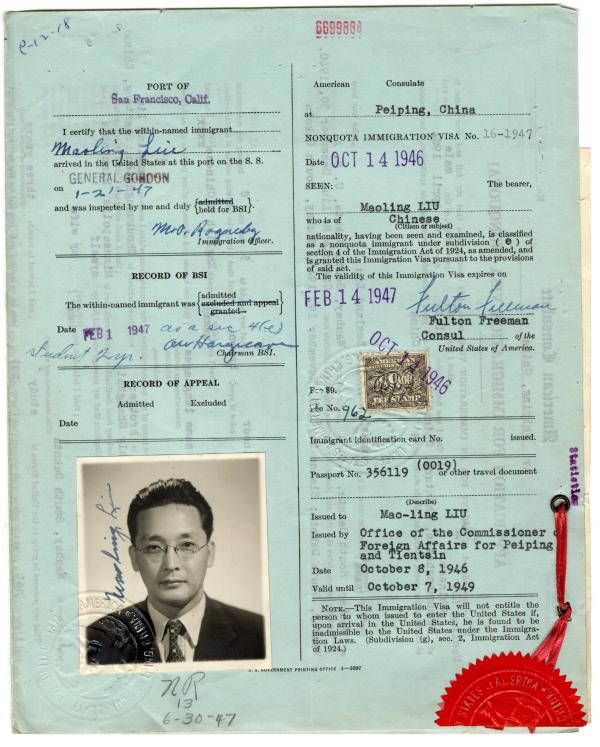 6699884
PORT OF
San Francisco, Calif.
I certify that the within-named immigrant
Maoling Liu
arrived in the United States at this port on the S. S.
GENERAL GORDON
on 1-21-47
and was inspected by me and duly {admitted / held for BSI}.
Immigration Officer.
RECORD OF BSI
The within-named immigrant was {admitted / excluded and appeal granted}
Date FEB 1 1947 as a sec 4(e)
student 2 yr.
Chairman BSI.
RECORD OF APPEAL
Admitted Excluded
Date
Maoling Liu
NR
13
6-30-47
U. S. GOVERNMENT PRINTING OFFICE
American Consulate
at Peiping, China
NONQUOTA IMMIGRATION VISA No. 16-1947
Date OCT 14 1946
SEEN: The bearer,
Maoling LIU
who is of Chinese
(Citizen or subject)
nationality, having been seen and examined, is classified
as a nonquota immigrant under subdivision ( e ) of
section 4 of the Immigration Act of 1924, as amended, and
is granted this Immigration Visa pursuant to the provisions
of said act.
The validity of this Immigration Visa expires on
FEB 14 1947
Fulton Freeman
Fulton Freeman
Consul of the
United States of America.
OCT 14 1946
FEE STAMP
Fee $9.
Fee No. 962
Immigrant identification card No. issued.
Passport No. 356119 (0019) or other travel document
(Describe)
Issued to Mao-ling LIU
Issued by Office of the Commissioner
Foreign Affairs for Peiping
and Tientsin
Date October 8, 1946
Valid until October 7, 1949
NOTE.—This Immigration Visa will not entitle the
person to whom issued to enter the United States if,
upon arrival in the United States, he is found to be
inadmissible to the United States under the Immigra-
tion Laws. (Subdivision (g), sec. 2, Immigration Act
of 1924.)
Statistics